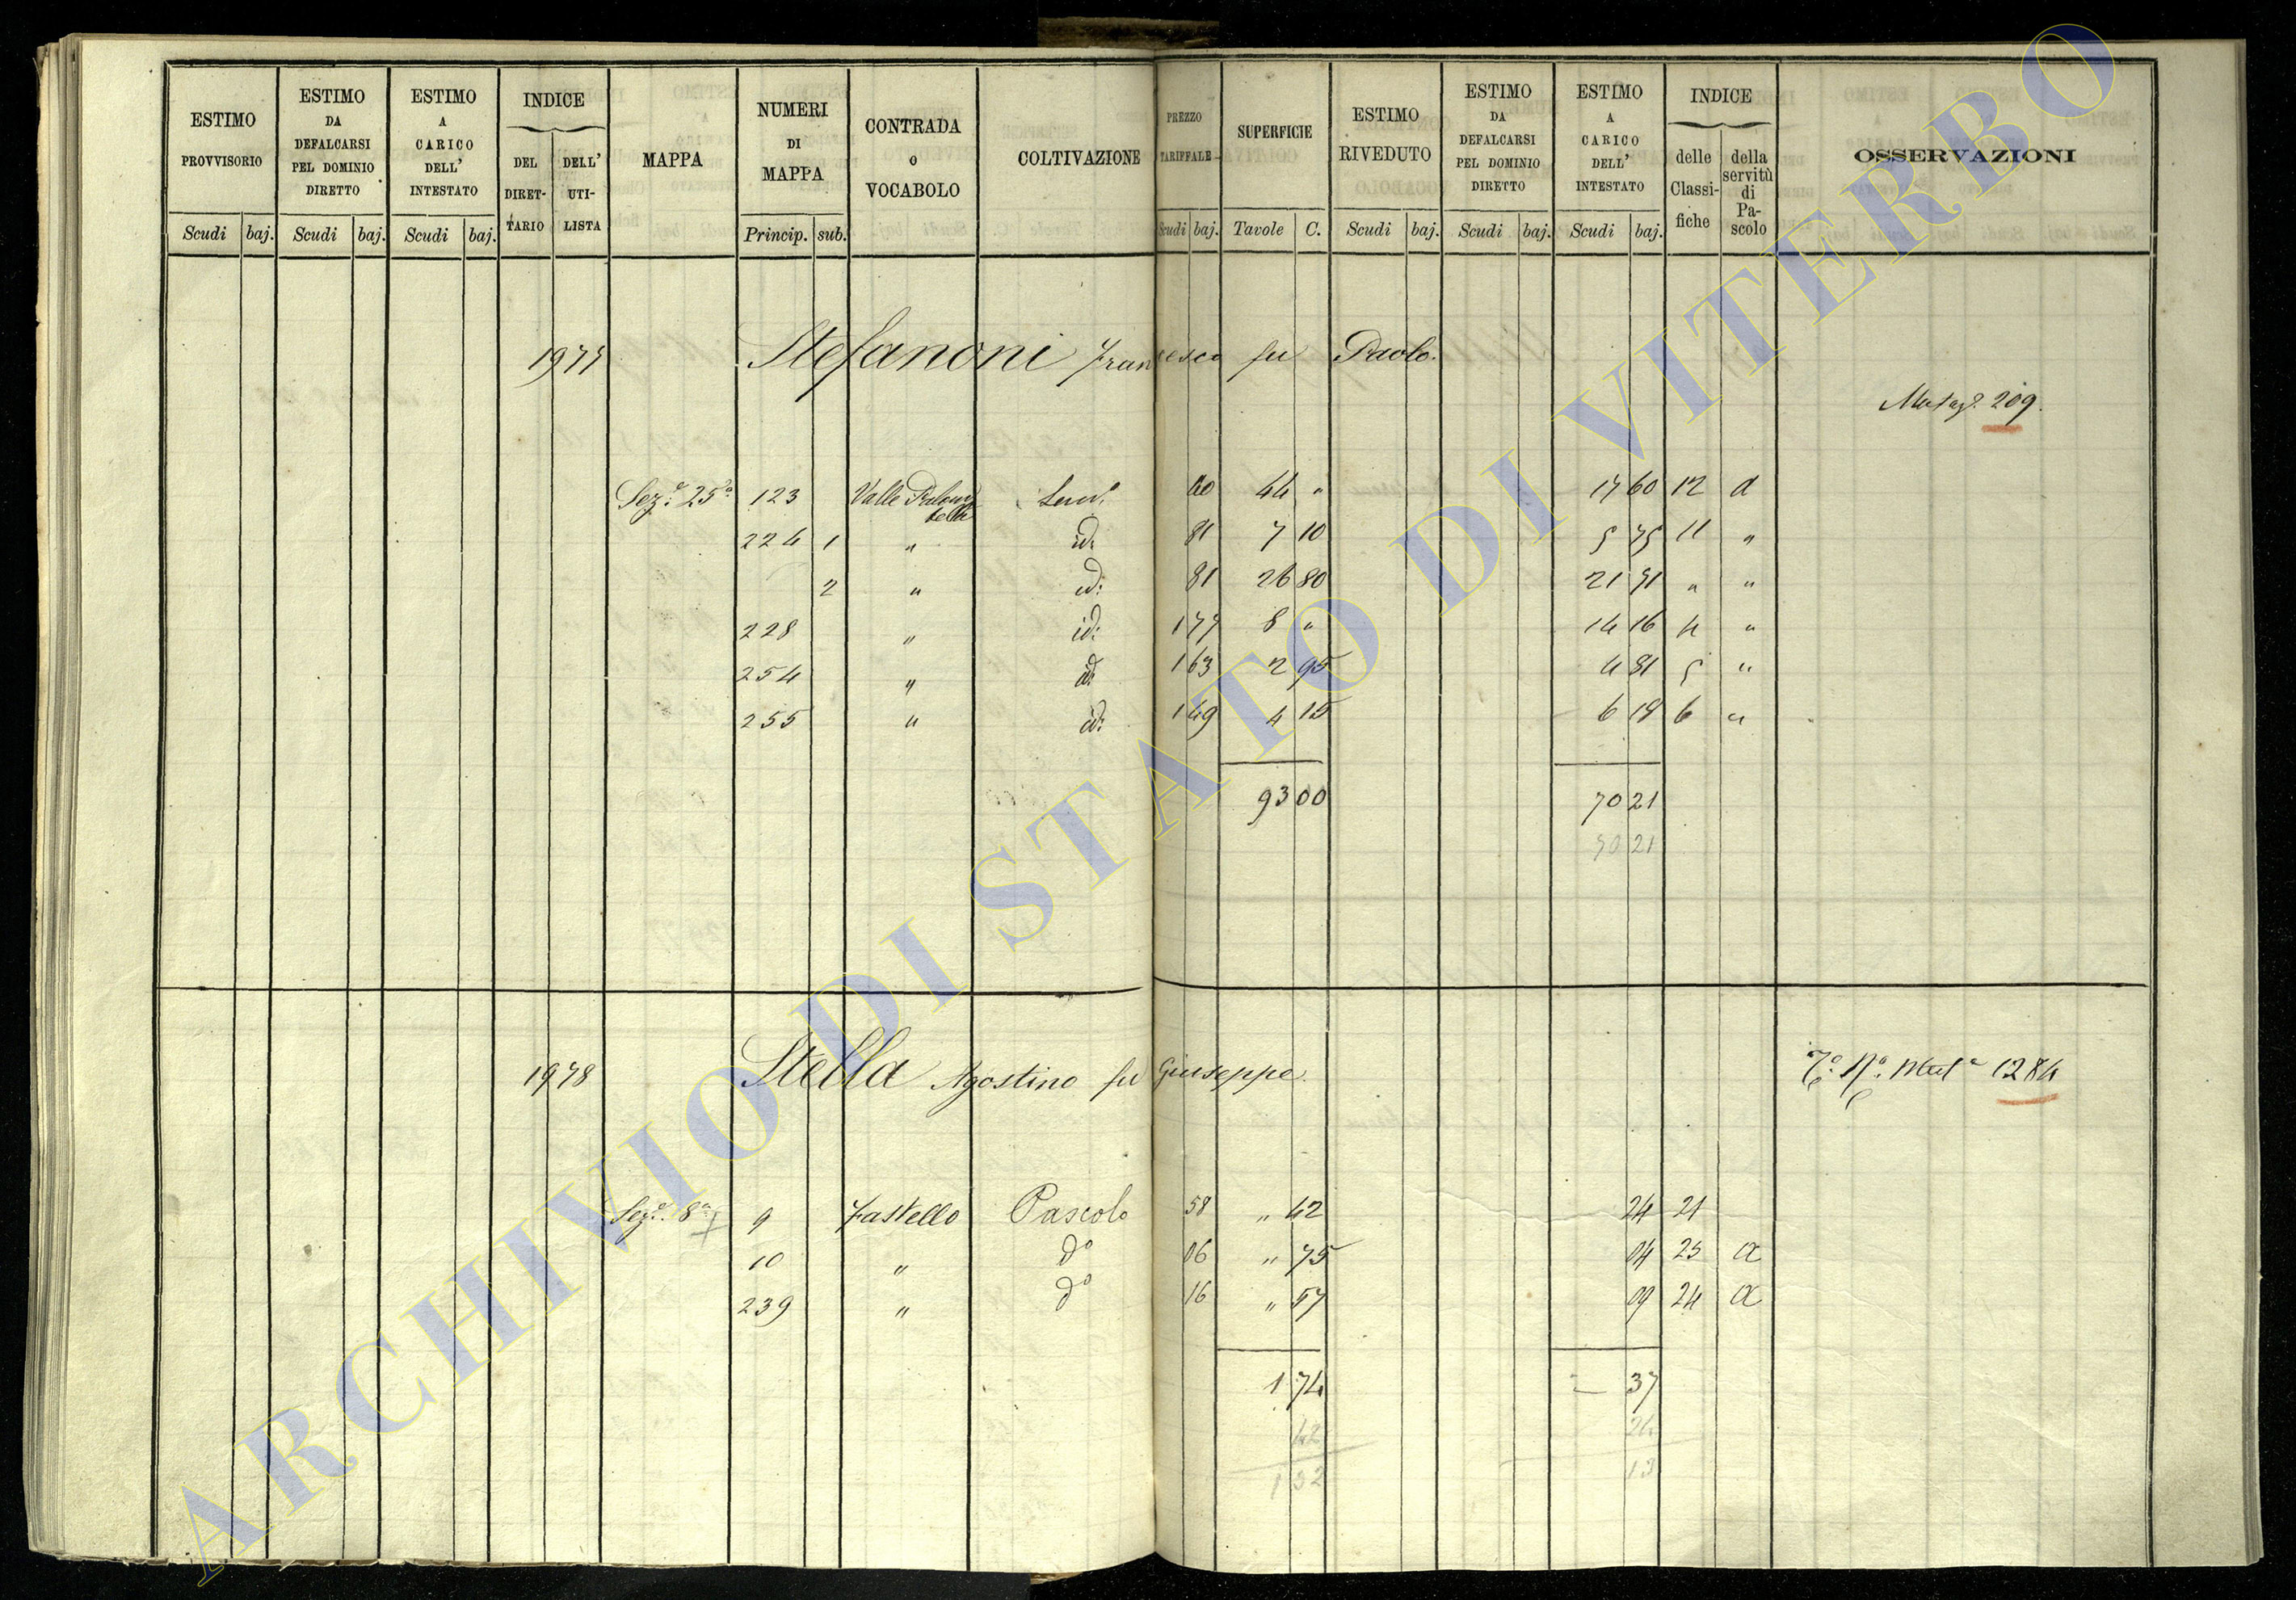 ESTIMO PROVVISORIO Scudi baj.
ESTIMO DA DEFALCARSI PEL DOMINIO DIRETTO Scudi baj.
ESTIMO A CARICO DELL' INTESTATO Scudi baj.
INDICE DEL DIRET-TARIO DELL' UTI-LISTA
MAPPA
NUMERI DI MAPPA Princip. sub.
CONTRADA O VOCABOLO
COLTIVAZIONE
PREZZO TARIFFALE Scudi baj.
SUPERFICIE Tavole C.
ESTIMO RIVEDUTO Scudi baj.
ESTIMO DA DEFALCARSI PEL DOMINIO DIRETTO Scudi baj.
ESTIMO A CARICO DELL' INTESTATO Scudi baj.
INDICE delle Classi-fiche della servitù di Pa-scolo
OSSERVAZIONI
1977 Stefanoni Francesco fu Paolo.
209.
Sez.e 25a 123 Valle 40 44 " 17 60 12 a
224 1 " id: 81 7 10 5 75 11 "
2 " id: 81 26 80 21 71 " "
228 " id: 1 77 8 " 14 16 4 "
254 " id: 1 63 2 95 4 81 5 "
255 " id: 1 49 4 15 6 18 6 "
93 00 70 21
70 21
1978 Stella Agostino fu Giuseppe. 1284
Sez.e 8a 9 Fastello Pascolo 58 " 42 24 21
10 " do 06 " 75 04 25 a
239 " do 16 " 57 09 24 a
1 74 — 37
42 24
1 32 13
ARCHIVIO DI STATO DI VITERBO